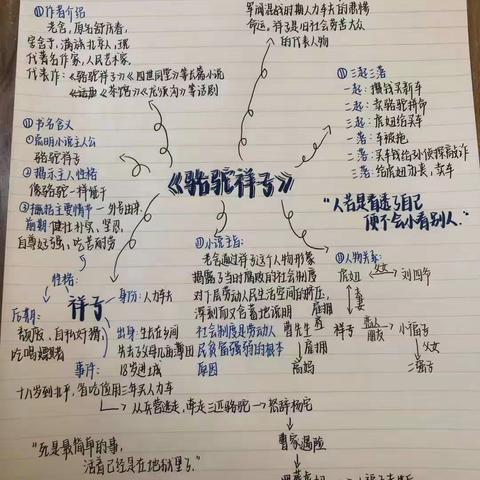 ①作者介绍
老舍，原名舒庆春，
字舍予，满族北京人，现
代著名作家，人民艺术家。
代表作：《骆驼祥子》《四世同堂》等长篇小说
《茶馆》《龙须沟》等话剧
军阀混战时期人力车夫的悲惨
命运。祥子是旧社会劳苦大众
的代表人物
①三起三落
一起：攒钱买新车
二起：卖骆驼拼命
三起：虎妞给买车
一落：车被抢
二落：买车钱给孙侦探敲诈
三落：给虎妞办丧，卖车
①书名含义
①点明小说主人公
骆驼祥子
②揭示主人性格
像骆驼一样憨干
③概括主要情节—外号由来
《骆驼祥子》
"人若是看透了自己
便不会小看别人。"
前期：健壮朴实、坚忍、
自尊好强、吃苦耐劳
性格：
祥子
身份：人力车夫
后期：
自私好猾，
吃喝嫖赌
出身：生长在乡间
失去了父母几亩薄田
18岁进城
事件：
①小说主旨：
老舍通过祥子这个人物形象
揭露了当时腐败的社会制度
对下层劳动人民生活空间的挤压，
深刻而又含蓄地说明
社会制度是劳动人
民贫苦弱的根本
原因
①人物关系：
虎妞 父女 刘四爷
夫妻
祥子 恋人 朋友 小福子
父女
二强子
曹先生 雇拥
雇拥
高妈
十八岁到北平，省吃俭用三年买人力车
从兵营逃走，牵走三匹骆驼→怒辞杨宅
曹家遇险
"死是最简单的事，
活着已经是在地狱里了。"